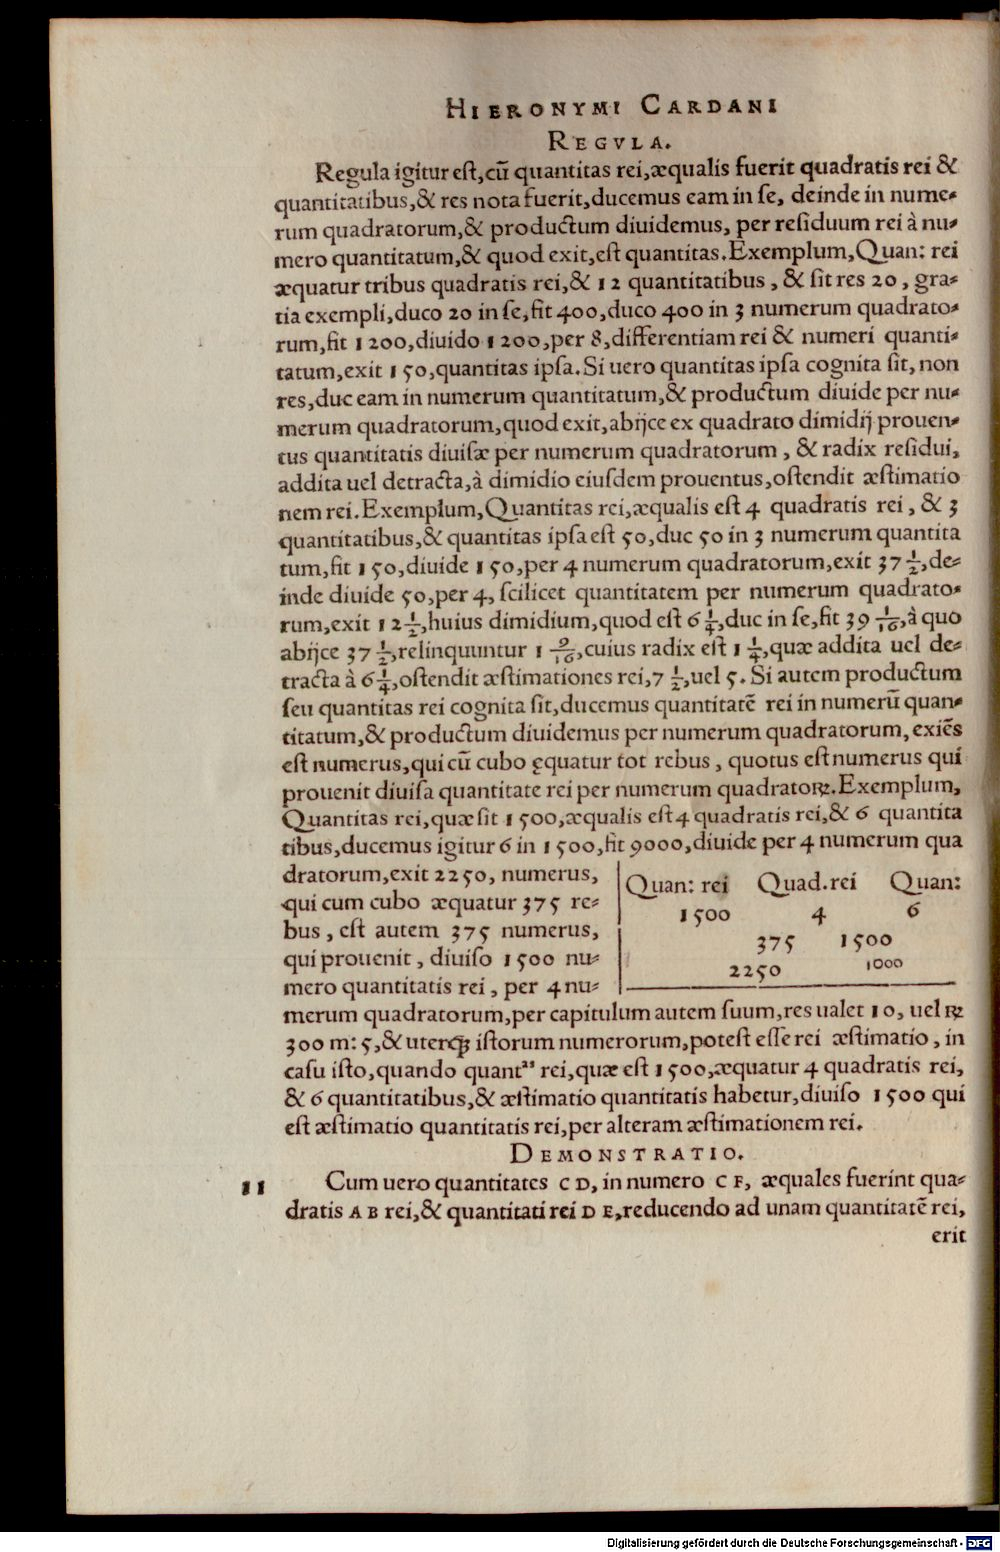 HIERONYMI CARDANI
REGVLA.
Regula igitur eſt, cũ quantitas rei, æqualis fuerit quadratis rei &
quantitatibus, & res nota fuerit, ducemus eam in ſe, deinde in nume-
rum quadratorum, & productum diuidemus, per reſiduum rei à nu-
mero quantitatum, & quod exit, eſt quantitas. Exemplum, Quan: rei
æquatur tribus quadratis rei, & 12 quantitatibus, & ſit res 20, gra-
tia exempli, duco 20 in ſe, fit 400, duco 400 in 3 numerum quadrato-
rum, fit 1200, diuido 1200, per 8, differentiam rei & numeri quanti-
tatum, exit 150, quantitas ipſa. Si uero quantitas ipſa cognita ſit, non
res, duc eam in numerum quantitatum, & productum diuide per nu-
merum quadratorum, quod exit, abijce ex quadrato dimidij prouen-
tus quantitatis diuiſæ per numerum quadratorum, & radix reſidui,
addita uel detracta, à dimidio eiuſdem prouentus, oſtendit æſtimatio
nem rei. Exemplum, Quantitas rei, æqualis eſt 4 quadratis rei, & 3
quantitatibus, & quantitas ipſa eſt 50, duc 50 in 3 numerum quantita
tum, fit 150, diuide 150, per 4 numerum quadratorum, exit 37 1/2, de-
inde diuide 50, per 4, ſcilicet quantitatem per numerum quadrato-
rum, exit 12 1/2, huius dimidium, quod eſt 6 1/4, duc in ſe, fit 39 1/16, à quo
abijce 37 1/2, relinquuntur 1 9/16, cuius radix eſt 1 1/4, quæ addita uel de-
tracta à 6 1/4, oſtendit æſtimationes rei, 7 1/2, uel 5. Si autem productum
ſeu quantitas rei cognita ſit, ducemus quantitatẽ rei in numerũ quan-
titatum, & productum diuidemus per numerum quadratorum, exiẽs
eſt numerus, qui cũ cubo ęquatur tot rebus, quotus eſt numerus qui
prouenit diuiſa quantitate rei per numerum quadratoꝝ. Exemplum,
Quantitas rei, quæ ſit 1500, æqualis eſt 4 quadratis rei, & 6 quantita
tibus, ducemus igitur 6 in 1500, fit 9000, diuide per 4 numerum qua
dratorum, exit 2250, numerus,
qui cum cubo æquatur 375 re-
bus, eſt autem 375 numerus,
qui prouenit, diuiſo 1500 nu-
mero quantitatis rei, per 4 nu-
Quan: rei Quad. rei Quan:
1500 4 6
375 1500
2250 1000
merum quadratorum, per capitulum autem ſuum, res ualet 10, uel ℞
300 m: 5, & uterq; iſtorum numerorum, poteſt eſſe rei æſtimatio, in
caſu iſto, quando quantᵃˢ rei, quæ eſt 1500, æquatur 4 quadratis rei,
& 6 quantitatibus, & æſtimatio quantitatis habetur, diuiſo 1500 qui
eſt æſtimatio quantitatis rei, per alteram æſtimationem rei.
DEMONSTRATIO.
11 Cum uero quantitates C D, in numero C F, æquales fuerint qua-
dratis A B rei, & quantitati rei D E, reducendo ad unam quantitatẽ rei,
erit
Digitalisierung gefördert durch die Deutsche Forschungsgemeinschaft - DFG